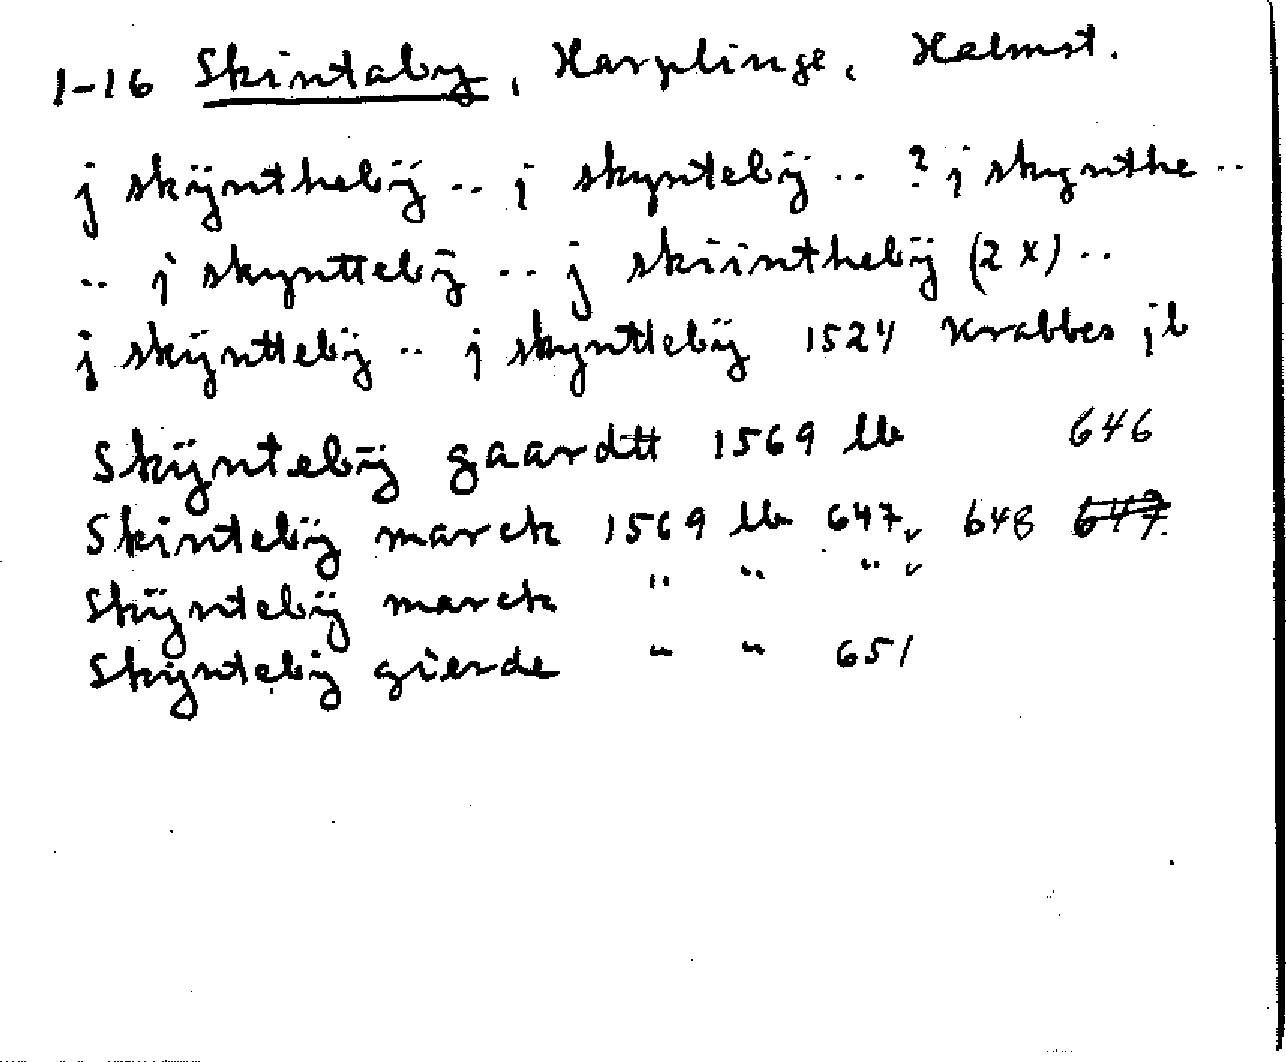 1-16 Skintaby, Harplinge, Halmst.
j skÿnthebÿ .. j skyntebÿ .. ? j skynthe ..
.. j skynttebÿ .. j skiinthebÿ (2 x) ..
j skÿnttebÿ .. j skynttebÿ 1524 Krabbes jb
Skÿntebÿ gaardtt 1569 lb 646
Skintebÿ marck 1569 lb 647, 648 647.
Skÿntebÿ marck " " "
Skÿntebÿ gierde " " 651